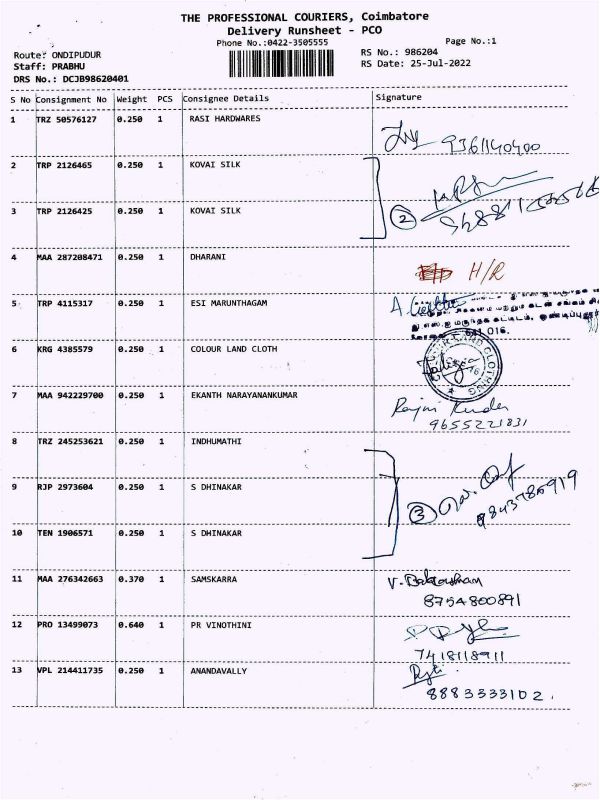 THE PROFESSIONAL COURIERS, Coimbatore
Delivery Runsheet - PCO
Phone No.:0422-3505555
Page No.:1
Route: ONDIPUDUR
RS No.: 986204
Staff: PRABHU
RS Date: 25-Jul-2022
DRS No.: DCJB98620401
S No Consignment No Weight PCS Consignee Details Signature
1 TRZ 50576127 0.250 1 RASI HARDWARES
9361140400
2 TRP 2126465 0.250 1 KOVAI SILK
2
3 TRP 2126425 0.250 1 KOVAI SILK
4 MAA 287208471 0.250 1 DHARANI
H/R
5 TRP 4115317 0.250 1 ESI MARUNTHAGAM
641 016.
6 KRG 4385579 0.250 1 COLOUR LAND CLOTH
COLOUR LAND CLOTHING
7 MAA 942229700 0.250 1 EKANTH NARAYANANKUMAR
9655221831
8 TRZ 245253621 0.250 1 INDHUMATHI
9 RJP 2973604 0.250 1 S DHINAKAR
3
10 TEN 1906571 0.250 1 S DHINAKAR
11 MAA 276342663 0.370 1 SAMSKARRA
8754800891
12 PRO 13499073 0.640 1 PR VINOTHINI
7418118911
13 VPL 214411735 0.250 1 ANANDAVALLY
8883333102.